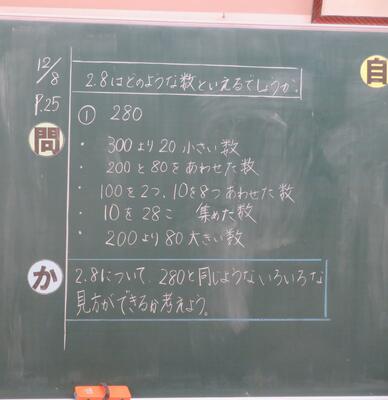 12/8
P.25
2.8はどのような数といえるでしょうか。
問
① 280
・ 300より20小さい数
・ 200と80をあわせた数
・ 100を2つ、10を8つあわせた数
・ 10を28こ 集めた数
・ 200より80大きい数
か
2.8について、280と同じようないろいろな
見方ができるか考えよう。
自